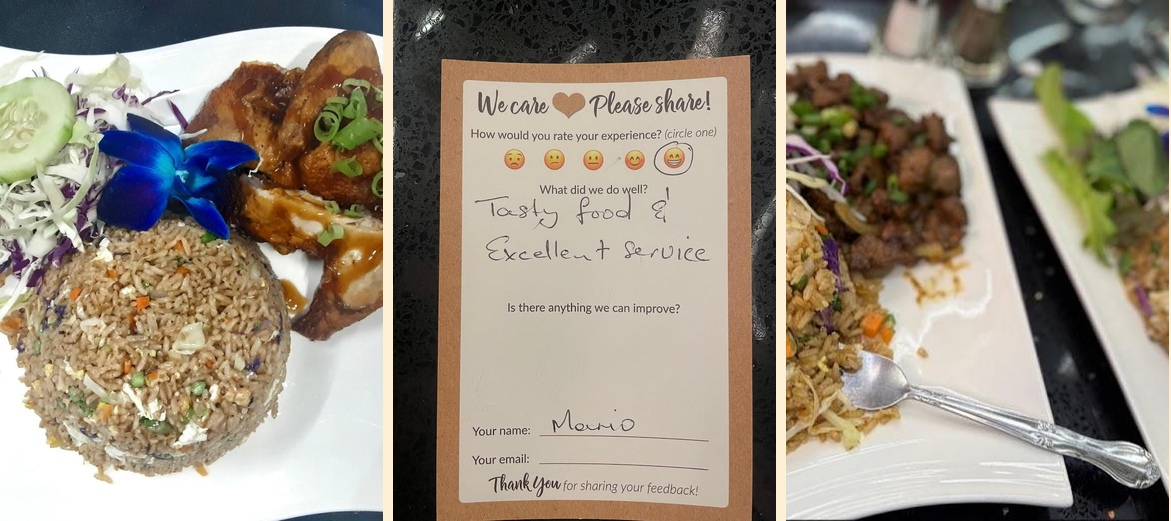 We care Please share!
How would you rate your experience? (circle one)
What did we do well?
Tasty food &
Excellent service
Is there anything we can improve?
Your name: Mario
Your email:
Thank You for sharing your feedback!